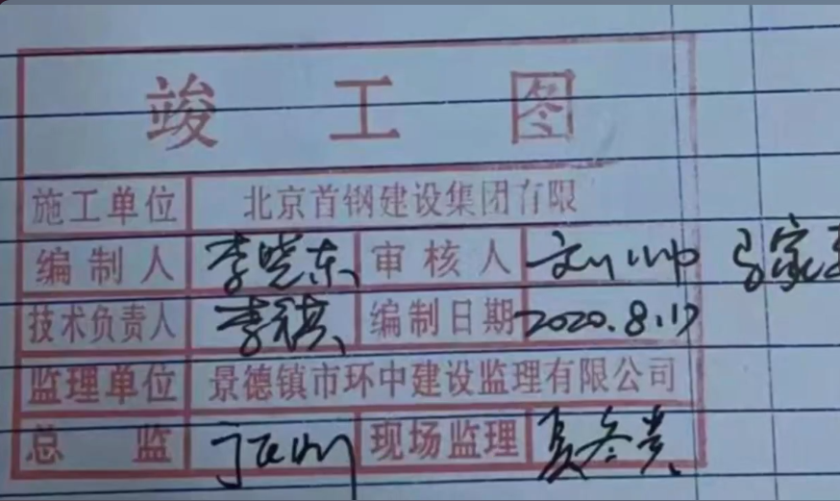 竣工图
施工单位 北京首钢建设集团有限
编制人 李晓东 审核人 刘小帅
技术负责人 李祺 编制日期 2020.8.17
监理单位 景德镇市环中建设监理有限公司
总监 现场监理